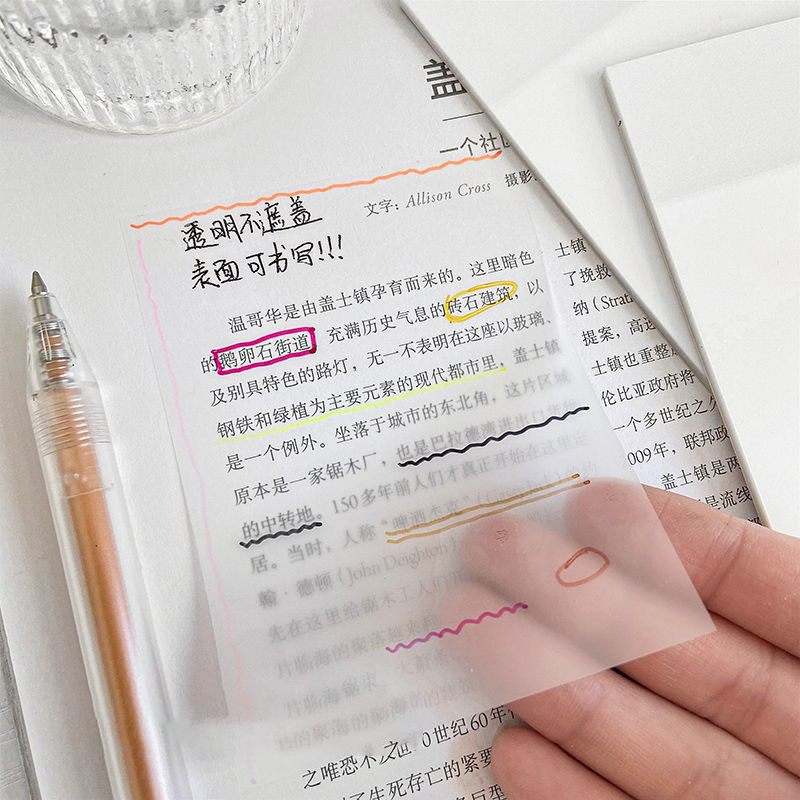 盖
一个社区
文字：Allison Cross 摄影：
透明不遮盖
表面可书写!!!
温哥华是由盖士镇孕育而来的。这里暗色
的鹅卵石街道，充满历史气息的砖石建筑，以
及别具特色的路灯，无一不表明在这座以玻璃、
钢铁和绿植为主要元素的现代都市里，盖士镇
是一个例外。坐落于城市的东北角，这片区域
原本是一家锯木厂，也是巴拉德澳进出口货物
的中转地。150多年前人们才真正开始在这里定
居。当时，人称“啤酒杰克”
翰·德顿（John Deighton）
先在这里给锯木工人们
片临海的聚落越来
之唯恐不及。0世纪60年
了生死存亡的紧要
士镇
了挽救
纳（Strat
提案，高速
士镇也重整
伦比亚政府将
一个多世纪之久
009年，联邦政
盖士镇是两
是流线